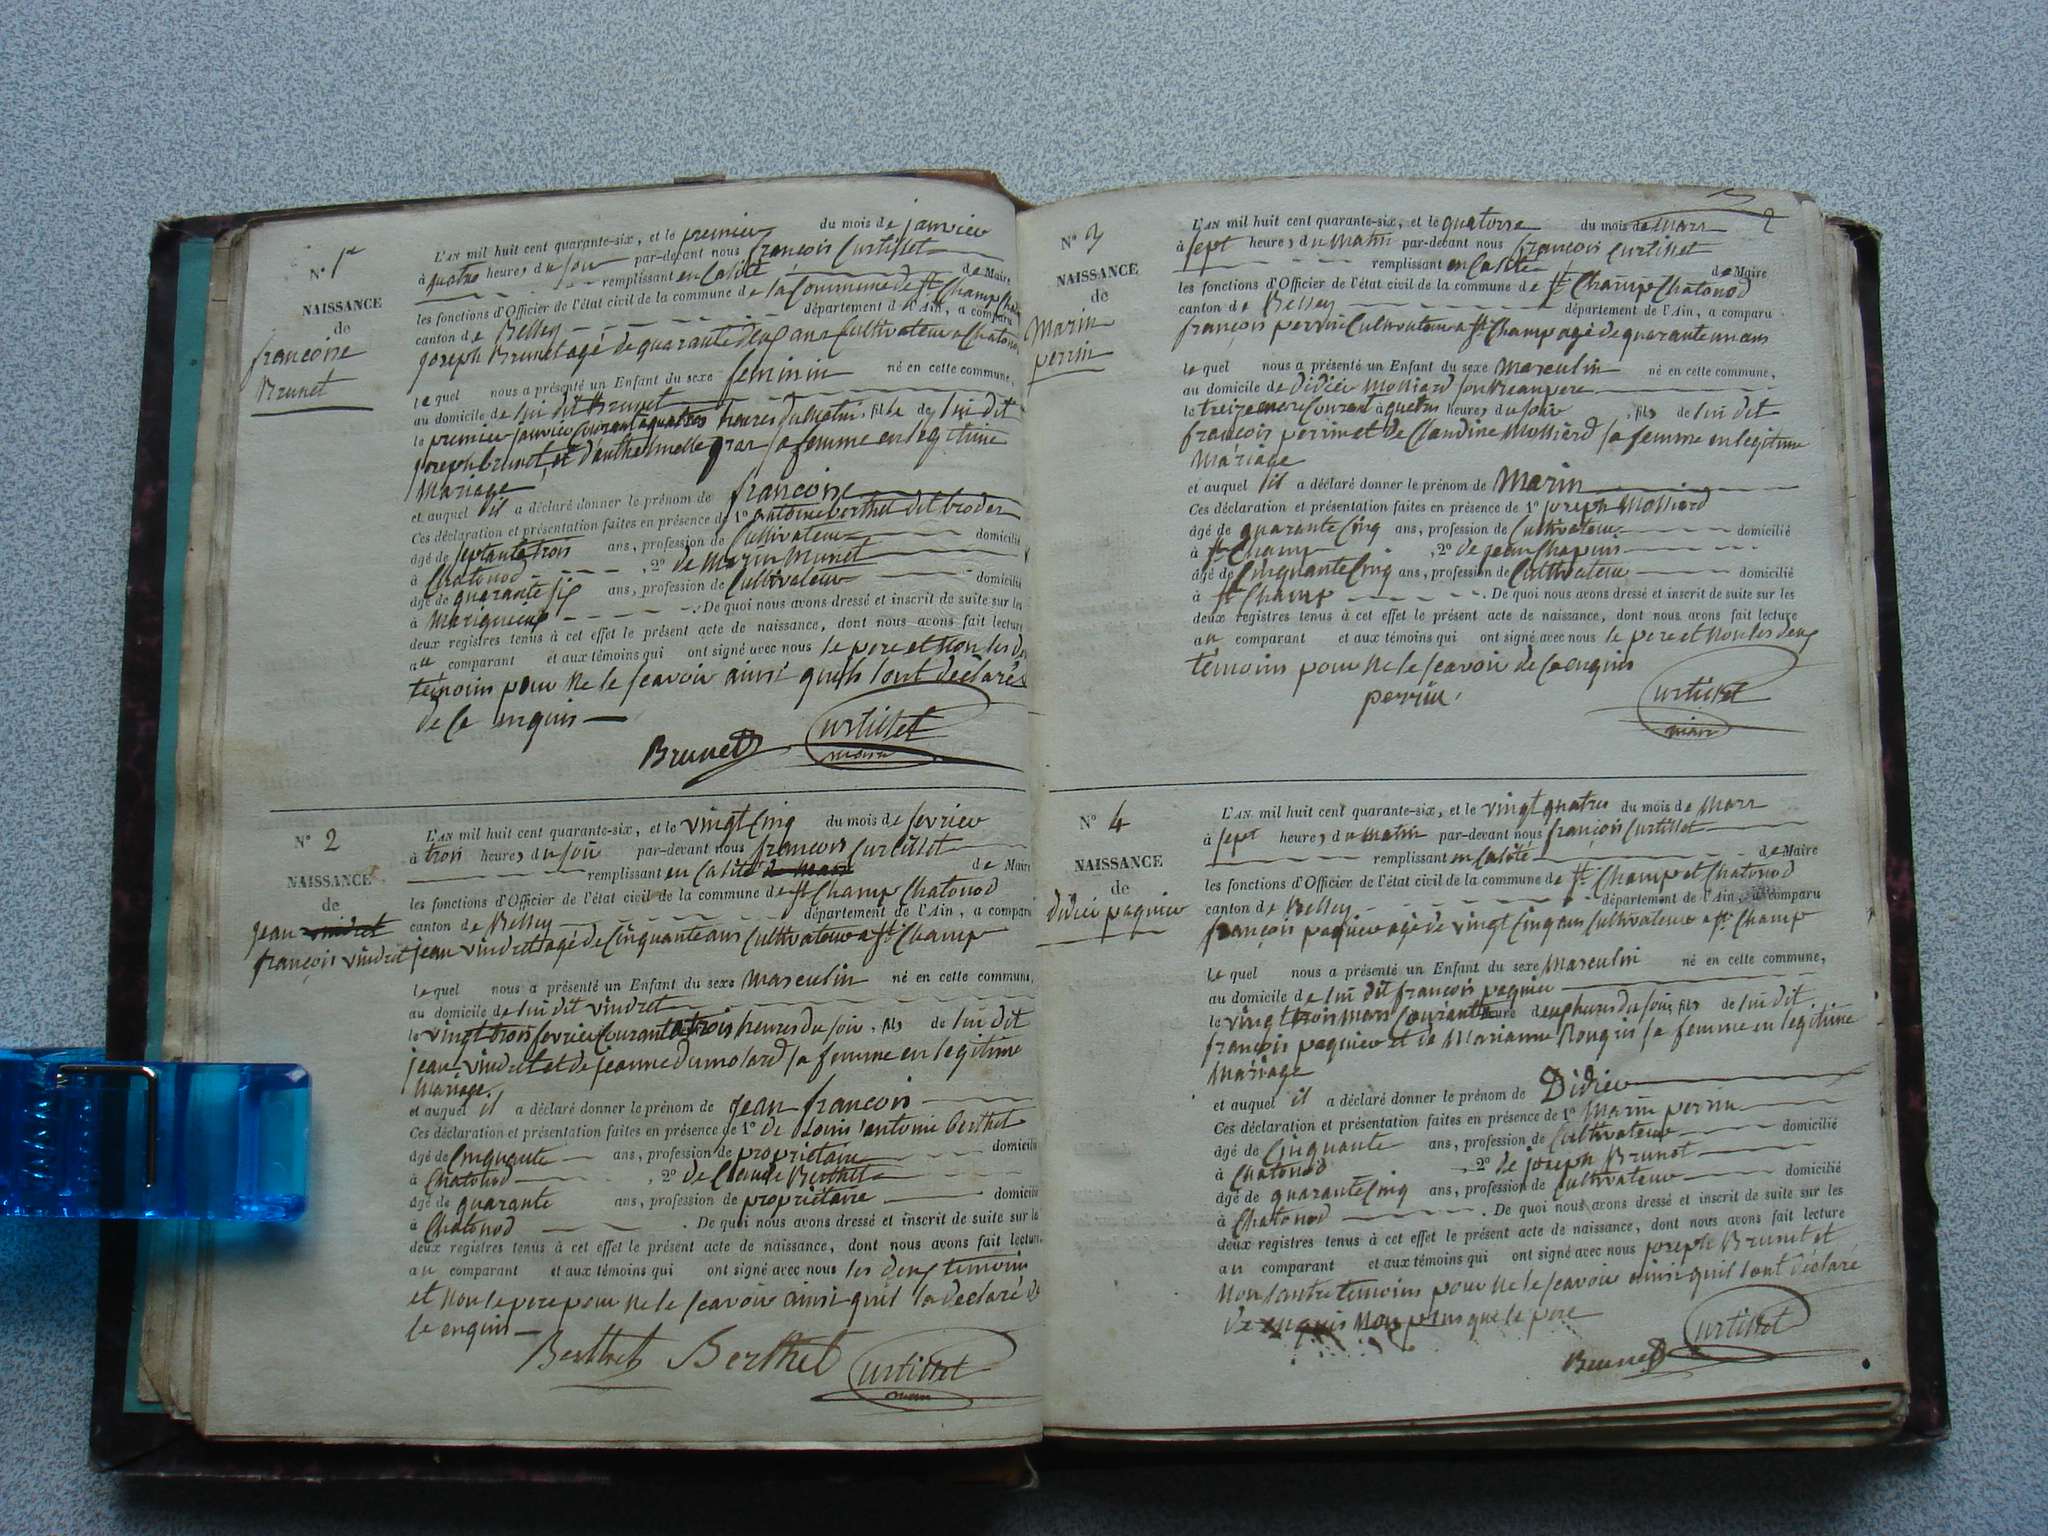 N° 1er
NAISSANCE
de
francoise
Brunet
L'AN mil huit cent quarante-six, et le premier du mois de janvier
à quatre heures du soir par-devant nous françois Curtillet
remplissant en calité de Maire
les fonctions d'Officier de l'état civil de la commune de la Commune de St Champ
canton de Belley département de l'Ain, a comparu
joseph Brunet agé de quarante deux ans Cultivateur a Chatonod
lequel nous a présenté un Enfant du sexe feminin né en cette commune,
au domicile de lui dit Brunet
le premier janvier Courant a quatre heures du matin, fille de lui dit
joseph brunet, et sa femme en legitime
Mariage
et auquel il a déclaré donner le prénom de francoise
Ces déclaration et présentation faites en présence de 1° antoine berthet dit
âgé de septante trois ans, profession de Cultivateur domicilié
à Chatonod, 2° de Marin Munet
âgé de quarante six ans, profession de Cultivateur domicilié
à . De quoi nous avons dressé et inscrit de suite sur les
deux registres tenus à cet effet le présent acte de naissance, dont nous avons fait lecture
au comparant et aux témoins qui ont signé avec nous le pere et non les
témoins pour ne le scavoir ainsi quils lont declaré
de ce enquis
Brunet Curtillet
maire
N° 2
NAISSANCE
de
jean vindret
françois vindret
L'AN mil huit cent quarante-six, et le vingt Cinq du mois de fevrier
à trois heures du soir par-devant nous françois Curtillet
remplissant en calité de Maire
les fonctions d'Officier de l'état civil de la commune de St Champ Chatonod
canton de Belley département de l'Ain, a comparu
jean vindret agé de Cinquante ans Cultivateur a St Champ
lequel nous a présenté un Enfant du sexe masculin né en cette commune,
au domicile de lui dit vindret
le vingt trois fevrier Courant a trois heures du soir, fils de lui dit
jean vindret et de jeanne Dumolard sa femme en legitime
Mariage
et auquel il a déclaré donner le prénom de jean françois
Ces déclaration et présentation faites en présence de 1° de Louis antoine berthet
âgé de Cinquante ans, profession de propriétaire domicilié
à Chatonod, 2° de Claude Berthet
âgé de quarante ans, profession de propriétaire domicilié
à Chatonod. De quoi nous avons dressé et inscrit de suite sur les
deux registres tenus à cet effet le présent acte de naissance, dont nous avons fait lecture
au comparant et aux témoins qui ont signé avec nous les deux temoins
et non le pere pour ne le scavoir ainsi quil la declaré de
ce enquis
Berthet Berthet Curtillet
maire
2
N° 3
NAISSANCE
de
Marin
perrin
L'AN mil huit cent quarante-six, et le quatorse du mois de mars
à sept heures du matin par-devant nous françois Curtillet
remplissant en Calité de Maire
les fonctions d'Officier de l'état civil de la commune de St Champ Chatonod
canton de Belley département de l'Ain, a comparu
françois perrin Cultivateur a St Champ agé de quarante un ans
lequel nous a présenté un Enfant du sexe Masculin né en cette commune,
au domicile de didier Molliard son beau pere
le treize mars Courant à heures du soir, fils de lui dit
françois perrin et de Claudine Molliard sa femme en legitime
Mariage
et auquel il a déclaré donner le prénom de Marin
Ces déclaration et présentation faites en présence de 1° joseph Molliard
âgé de quarante Cinq ans, profession de Cultivateur domicilié
à St Champ, 2° de jean Chapuis
âgé de Cinquante Cinq ans, profession de Cultivateur domicilié
à St Champ. De quoi nous avons dressé et inscrit de suite sur les
deux registres tenus à cet effet le présent acte de naissance, dont nous avons fait lecture
au comparant et aux témoins qui ont signé avec nous le pere et non les deux
témoins pour ne le scavoir de Ce enquis
perrin Curtillet
maire
N° 4
NAISSANCE
de
Didier paquier
L'AN mil huit cent quarante-six, et le vingt quatre du mois de Mars
à sept heures du matin par-devant nous françois Curtillet
remplissant en Calité de Maire
les fonctions d'Officier de l'état civil de la commune de St Champ et Chatonod
canton de Belley département de l'Ain, a comparu
françois paquier agé de vingt Cinq ans Cultivateur a St Champ
lequel nous a présenté un Enfant du sexe Masculin né en cette commune,
au domicile de lui dit françois paquier
le vingt trois mars Courant heure deux heures du soir, fils de lui dit
françois paquier et de Marianne sa femme en legitime
Mariage
et auquel il a déclaré donner le prénom de Didier
Ces déclaration et présentation faites en présence de 1° Marin perrin
âgé de Cinquante ans, profession de Cultivateur domicilié
à Chatonod, 2° de joseph Brunet
âgé de quarante Cinq ans, profession de Cultivateur domicilié
à Chatonod. De quoi nous avons dressé et inscrit de suite sur les
deux registres tenus à cet effet le présent acte de naissance, dont nous avons fait lecture
au comparant et aux témoins qui ont signé avec nous joseph Brunet et
Non lautre temoins pour ne le scavoir ainsi quil lont déclaré
de enquis Non plus que le pere
Brunet Curtillet